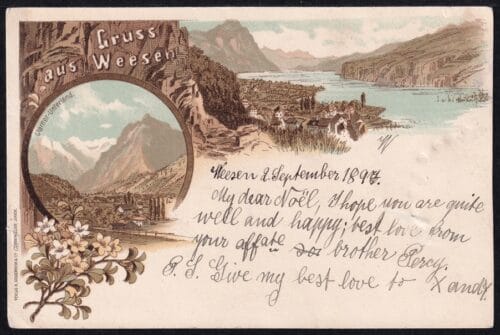 Gruss
aus Weesen
Glarner-Unterland.
Weesen 2. September 1897.
My dear Noël, I hope you are quite
well and happy; best love from
your affate brother Percy.
P. S. Give my best love to X and Y.